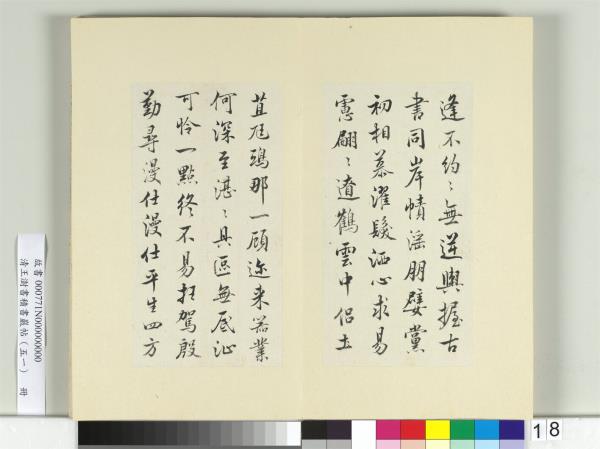 逢不約〻無逆輿握古
書同岸幘淫朋嬖黨
初相慕濯髮洒心求易
慮翩〻遼鶴雲中侶土
苴尫鴟那一顧迩来器業
何深至湛〻具區無底沚
可怜一點終不易枉駕殷
勤尋漫仕漫仕平生四方
故書 000771N00000000
清王澍書積書巖帖（五一） 冊
18